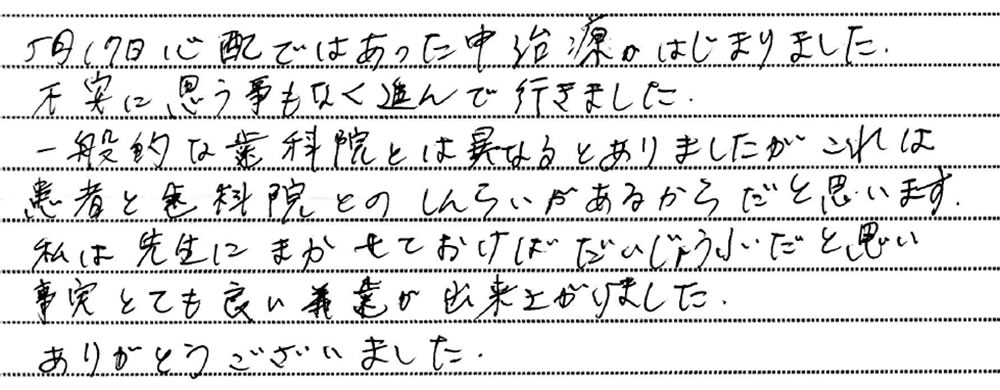 5月17日心配ではあった中治療がはじまりました.
不安に思う事もなく進んで行きました.
一般的な歯科院とは異なるとありましたがこれは
患者と歯科院とのしんらいがあるからだと思います.
私は先生にまかせておけばだいじょうぶいだと思い
事実とても良い義歯が出来上がりました.
ありがとうございました.